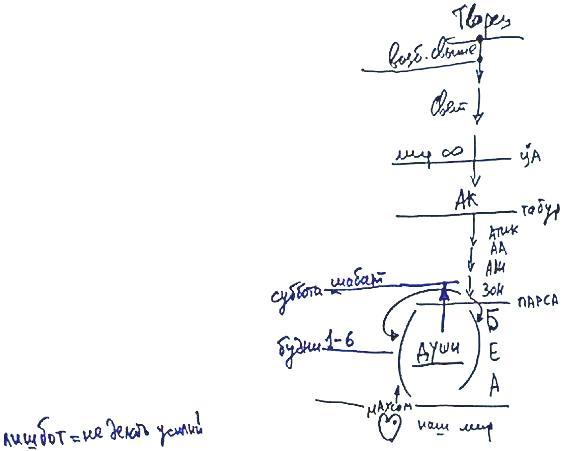 Творец
возб. свыше
Свет
мир ∞
ЦА
АК
табур
АТИК
АА
АИ
ЗОН
суббота шабат
ПАРСА
Б
будни 1-6
ДУШИ
Е
А
МАХСОМ
наш мир
лишбот = не делать усилий!